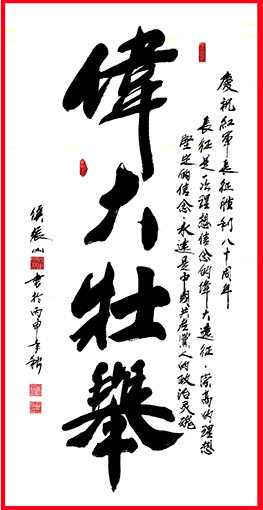 慶祝紅軍長征勝利八十周年
長征是一次理想信念的偉大遠征·崇高的理想
堅定的信念·永遠是中國共產黨人的政治灵魂
偉大壯舉
侯山書於丙申年秋